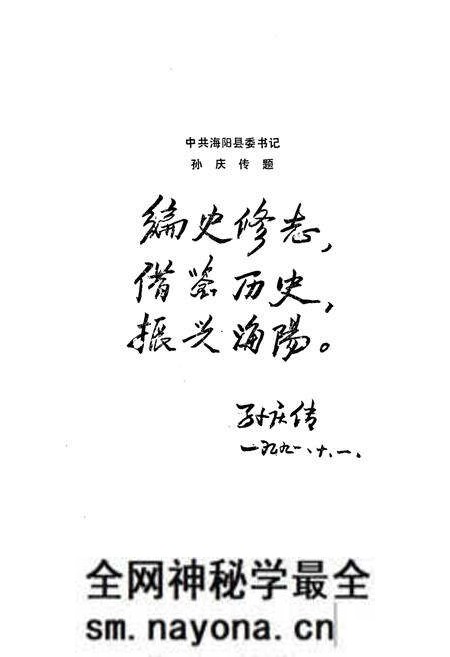 中共海阳县委书记
孙庆传题
编史修志，
借鉴历史，
振兴海陽。
孙庆传
一九九一、十、一。
全网神秘学最全
sm.nayona.cn